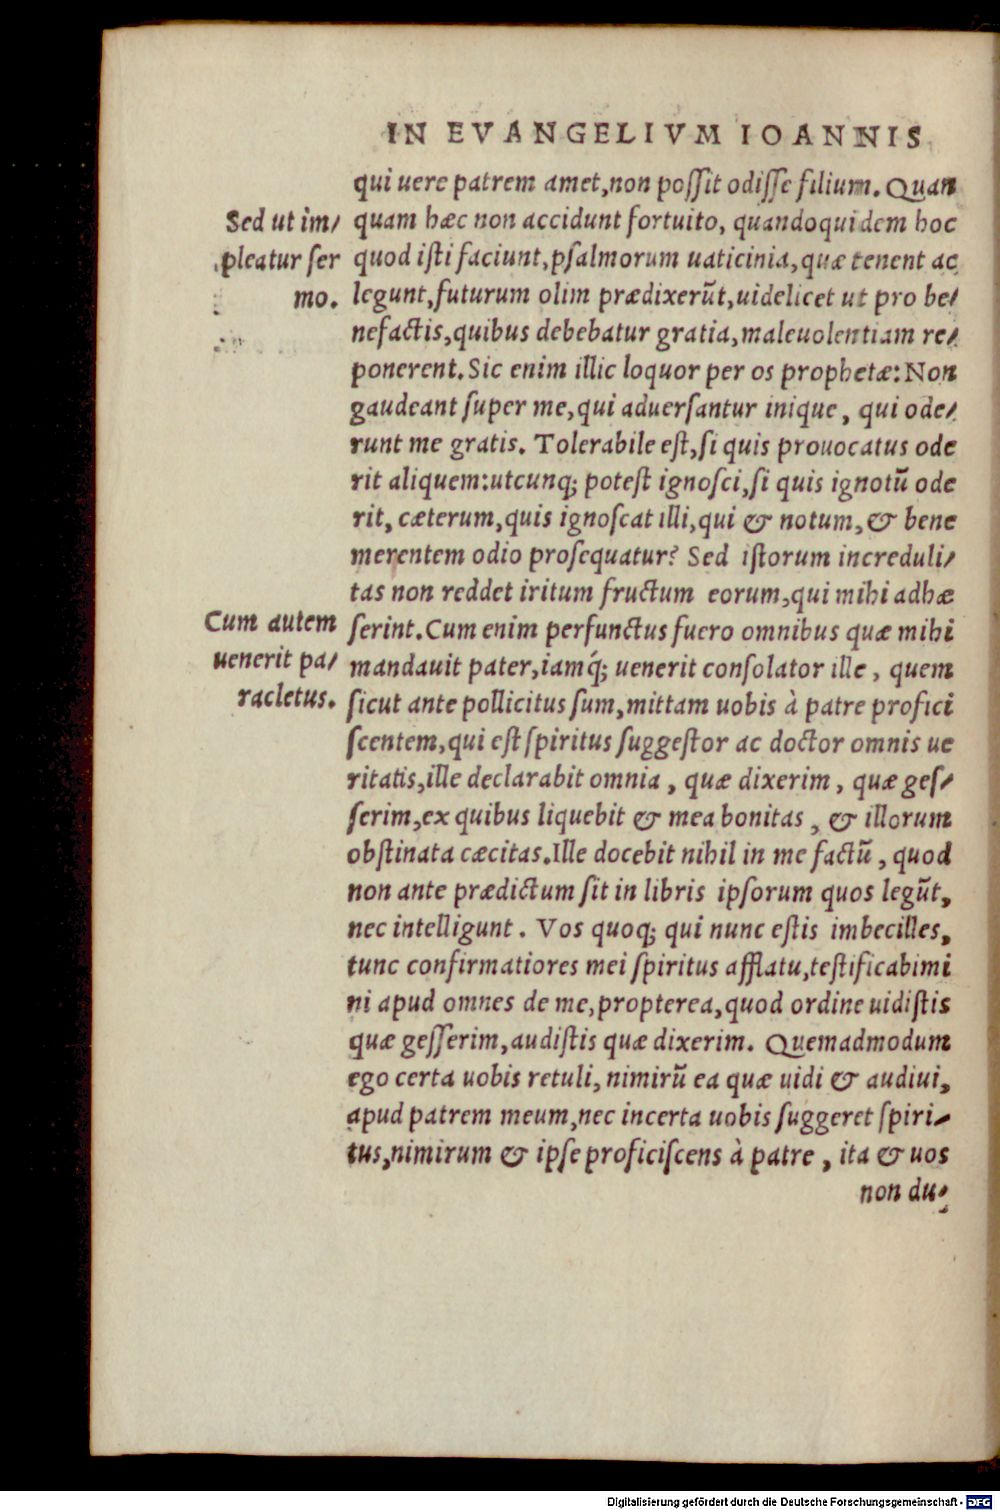 IN EVANGELIVM IOANNIS
qui uere patrem amet,non poſſit odiſſe filium. Quan
Sed ut im/
pleatur ſer
mo.
quam hæc non accidunt fortuito, quandoquidem hoc
quod iſti faciunt,pſalmorum uaticinia,quæ tenent ac
legunt,futurum olim prædixerũt,uidelicet ut pro be/
nefactis,quibus debebatur gratia,maleuolentiam re/
ponerent.Sic enim illic loquor per os prophetæ:Non
gaudeant ſuper me,qui aduerſantur inique, qui ode/
runt me gratis. Tolerabile eſt,ſi quis prouocatus ode
rit aliquem:utcunq; poteſt ignoſci,ſi quis ignotũ ode
rit, cæterum,quis ignoſcat illi,qui & notum,& bene
merentem odio proſequatur? Sed iſtorum increduli/
tas non reddet iritum fructum eorum,qui mihi adhæ
Cum autem
uenerit pa/
racletus.
ſerint.Cum enim perfunctus fuero omnibus quæ mihi
mandauit pater,iamq́; uenerit conſolator ille, quem
ſicut ante pollicitus ſum,mittam uobis à patre profici
ſcentem,qui eſt ſpiritus ſuggeſtor ac doctor omnis ue
ritatis,ille declarabit omnia, quæ dixerim, quæ geſ/
ſerim,ex quibus liquebit & mea bonitas, & illorum
obſtinata cæcitas.Ille docebit nihil in me factũ, quod
non ante prædictum ſit in libris ipſorum quos legũt,
nec intelligunt. Vos quoq; qui nunc eſtis imbecilles,
tunc confirmatiores mei ſpiritus afflatu,teſtificabimi
ni apud omnes de me,propterea,quod ordine uidiſtis
quæ geſſerim,audiſtis quæ dixerim. Quemadmodum
ego certa uobis retuli,nimirũ ea quæ uidi & audiui,
apud patrem meum,nec incerta uobis ſuggeret ſpiri/
tus,nimirum & ipſe proficiſcens à patre, ita & uos
non du/
Digitalisierung gefördert durch die Deutsche Forschungsgemeinschaft - DFG